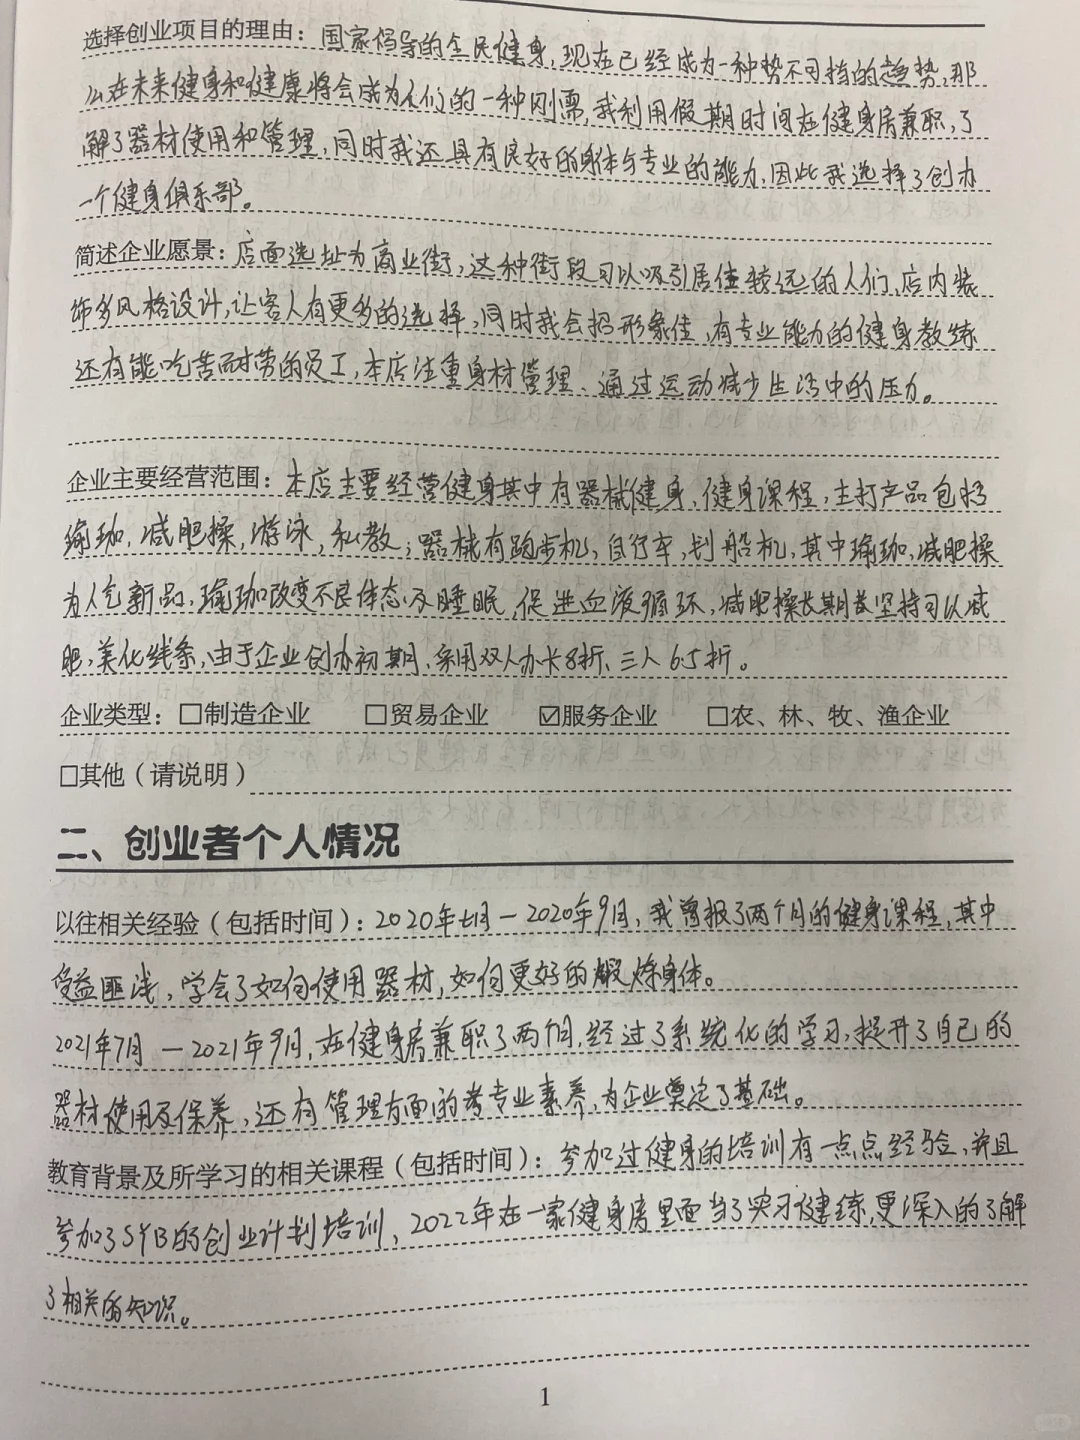 选择创业项目的理由：国家倡导的全民健身，现在已经成为一种势不可挡的趋势，那
么在未来健身和健康将会成为人们的一种刚需，我利用假期时间在健身房兼职，了
解了器材使用和管理，同时我还具有良好的身体与专业的能力，因此我选择了创办
一个健身俱乐部。
简述企业愿景：店面选址为商业街，这种街段可以吸引居住较远的人们，店内装
饰多风格设计，让客人有更多的选择，同时我会招形象佳，有专业能力的健身教练
还有能吃苦耐劳的员工，本店注重身材管理、通过运动减少生活中的压力。
企业主要经营范围：本店主要经营健身其中有器械健身，健身课程，主打产品包括
瑜珈，减肥操，游泳，私教；器械有跑步机，自行车，划船机，其中瑜珈，减肥操
为人气新品，瑜珈改变不良体态及睡眠，促进血液循环，减肥操长期长坚持可以减
肥，美化线条，由于企业创办初期，采用双人办卡8折、三人6.5折。
企业类型：☐制造企业 ☐贸易企业 ☑服务企业 ☐农、林、牧、渔企业
☐其他（请说明）
二、创业者个人情况
以往相关经验（包括时间）：2020年七月一2020年9月，我曾报了两个月的健身课程，其中
受益匪浅，学会了如何使用器材，如何更好的煅炼身体。
2021年7月 一2021年9月，在健身房兼职了两个月，经过了系统化的学习，提升了自己的
器材使用及保养，还有管理方面的专业素养，为企业奠定了基础。
教育背景及所学习的相关课程（包括时间）：参加过健身的培训有一点点经验，并且
参加了SYB的创业计划培训，2022年在一家健身房里面当了实习健练，更深入的了解
了相关的知识。
1